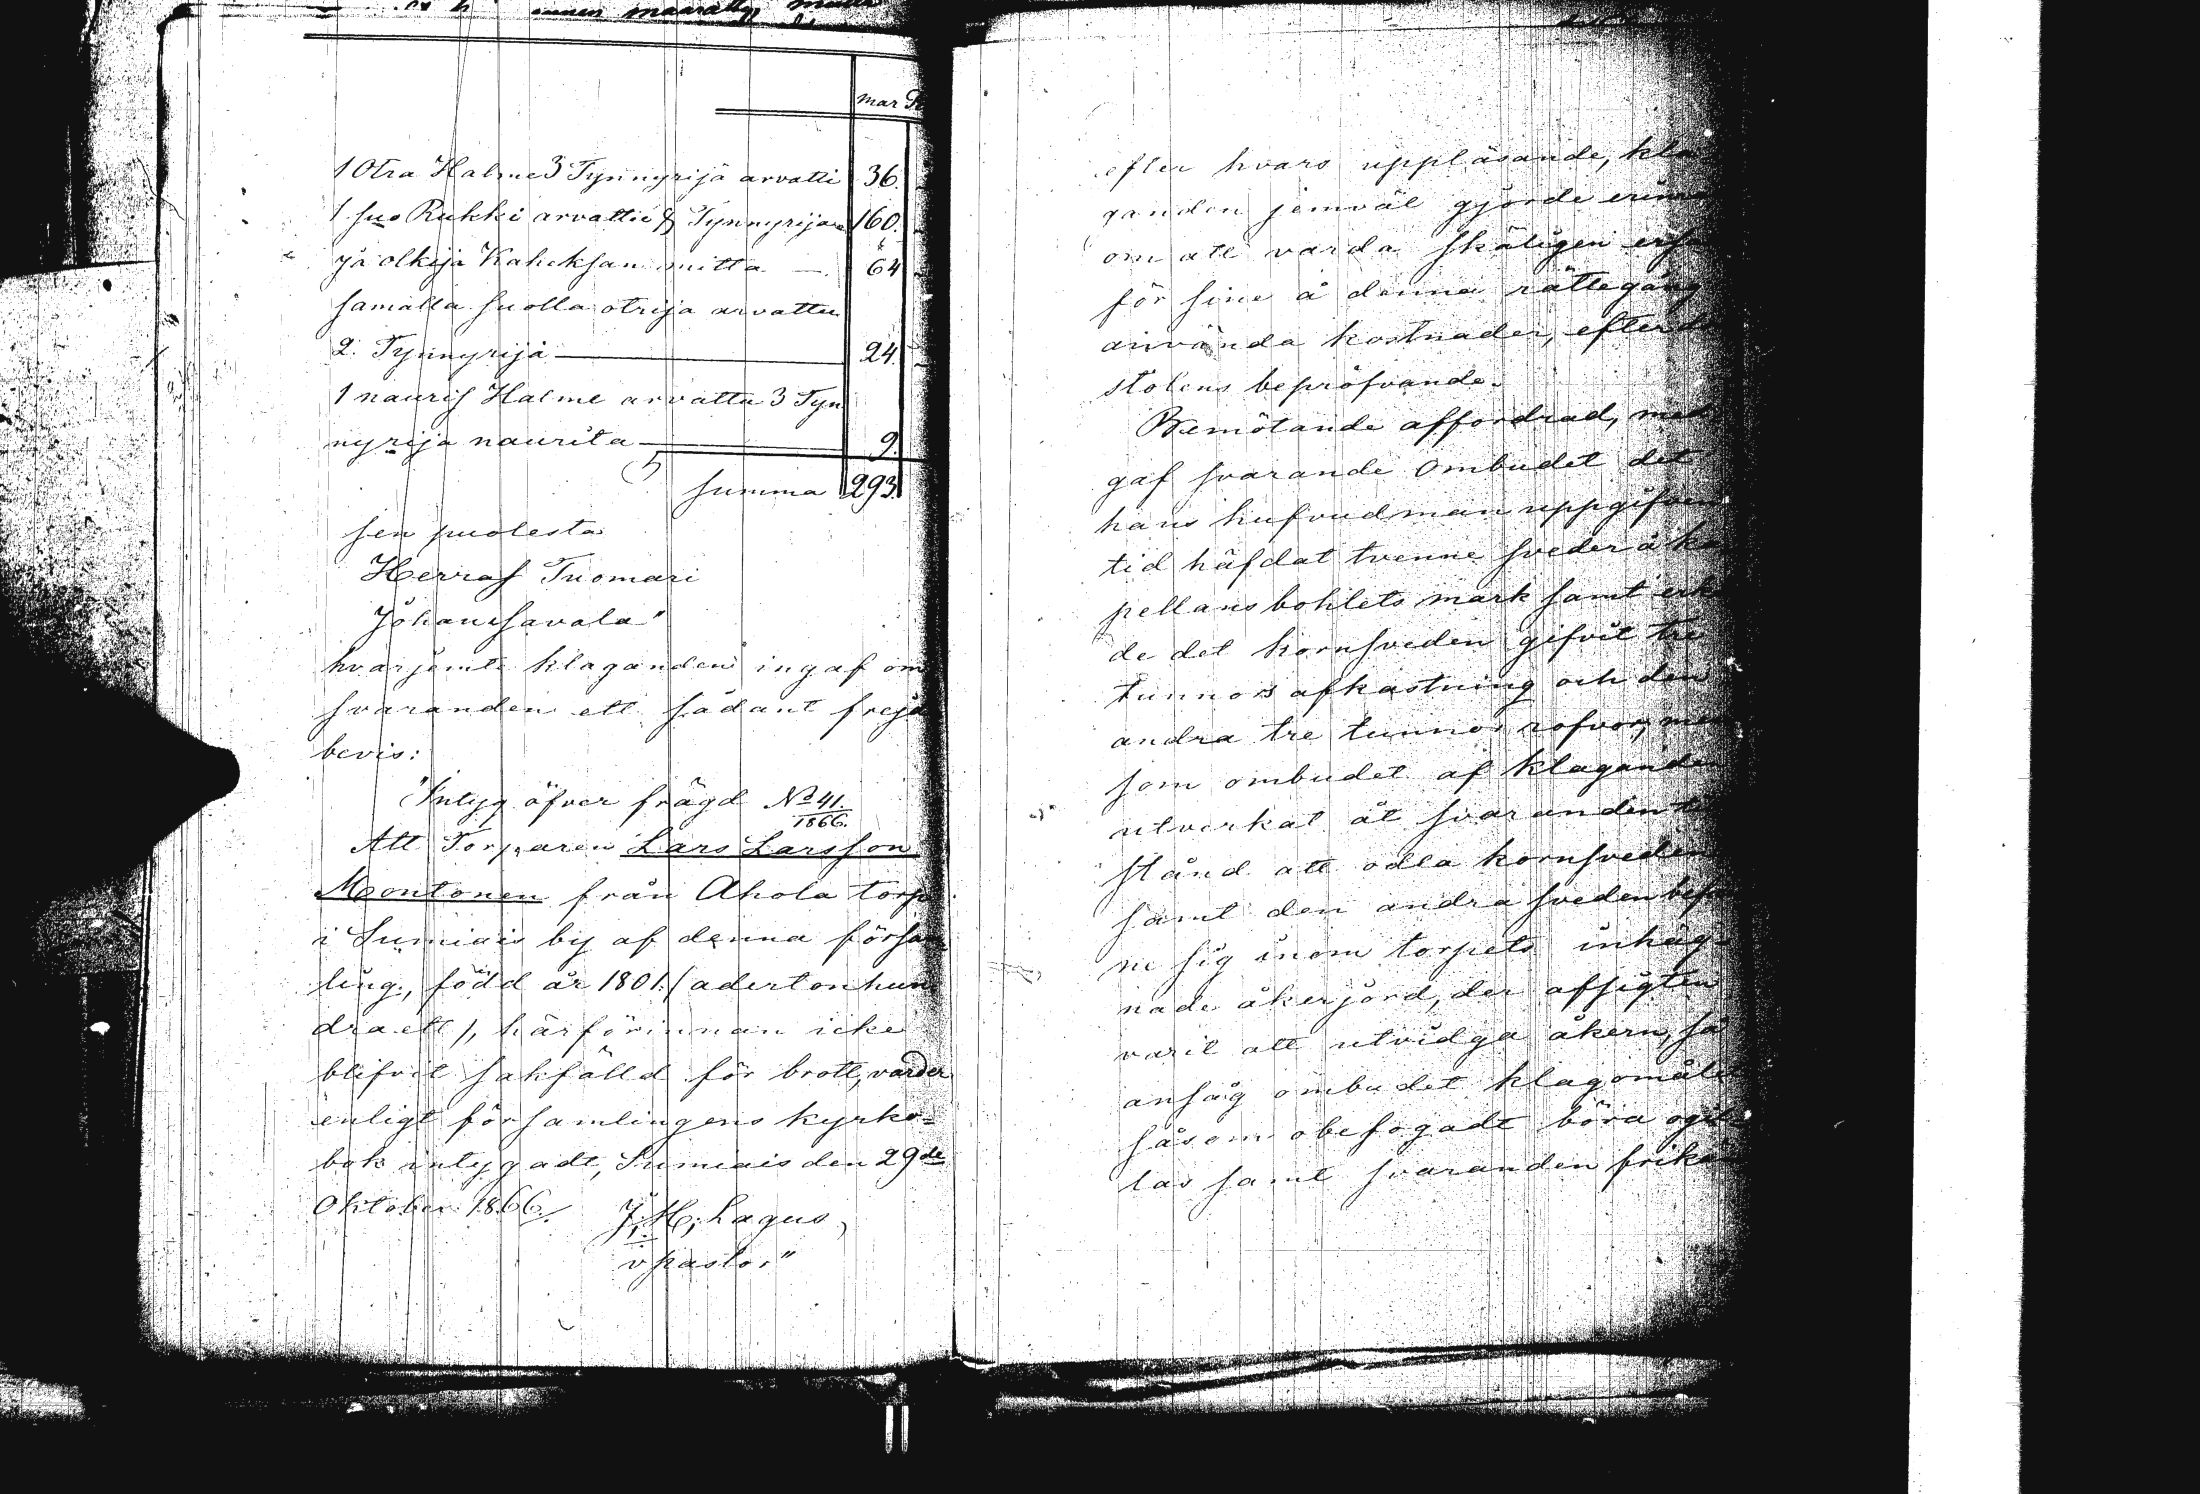 mar
1 Otra Halme 3 Tynnyrijä arvatti 36.
1 suo Rukki arvattu 8 Tynnyrijä 160.
jä olkija Kaheksan mitta — 64
samalla suolla otrija arvattu
2. Tynnyrijä — 24.
1 nauris Halme arvattu 3 Tyn
nyrija naurita — 9.
summa 293.
sen puolesta
Herras Tuomari
Johan Savala"
hvarjemte klaganden ingaf om
svaranden ett sådant frejd
bevis:
"Intyg öfver frägd No 41.
1866.
Att Torparen Lars Larsson
Montonen från Ahola torp
i Sumiais by af denna försam
ling, född år 1801 (adertonhun
draett), härförinnan icke
blifvit sakfälld för brott, varder
enligt församlingens kyrko=
bok intygadt, Sumiais den 29de
Oktober 1866.
J. H. Lagus,
v pastor"
efter hvars uppläsande, kla
ganden jemväl gjorde
om att varda skäligen
för sine å denna rättegång
använda kostnader, efter
stolens bepröfvande.
Bemötande affordrad, med
gaf svarande ombudet det
hans hufvudman uppgifven
tid häfdat tvenne sveder å ka
pellans bohlets mark samt
de det kornsveden gifvit tre
tunnors afkastning och den
andra tre tunnor rofvor, men
som ombudet af klaganden
utverkat åt svaranden
stånd att odla kornsveden
samt den andra sveden
ne sig inom torpets inhäg
nade åkerjord, der afsigten
varit att utvidga åkern, så
ansåg ombudet klagomålet
såsom obefogadt böra
las samt svaranden